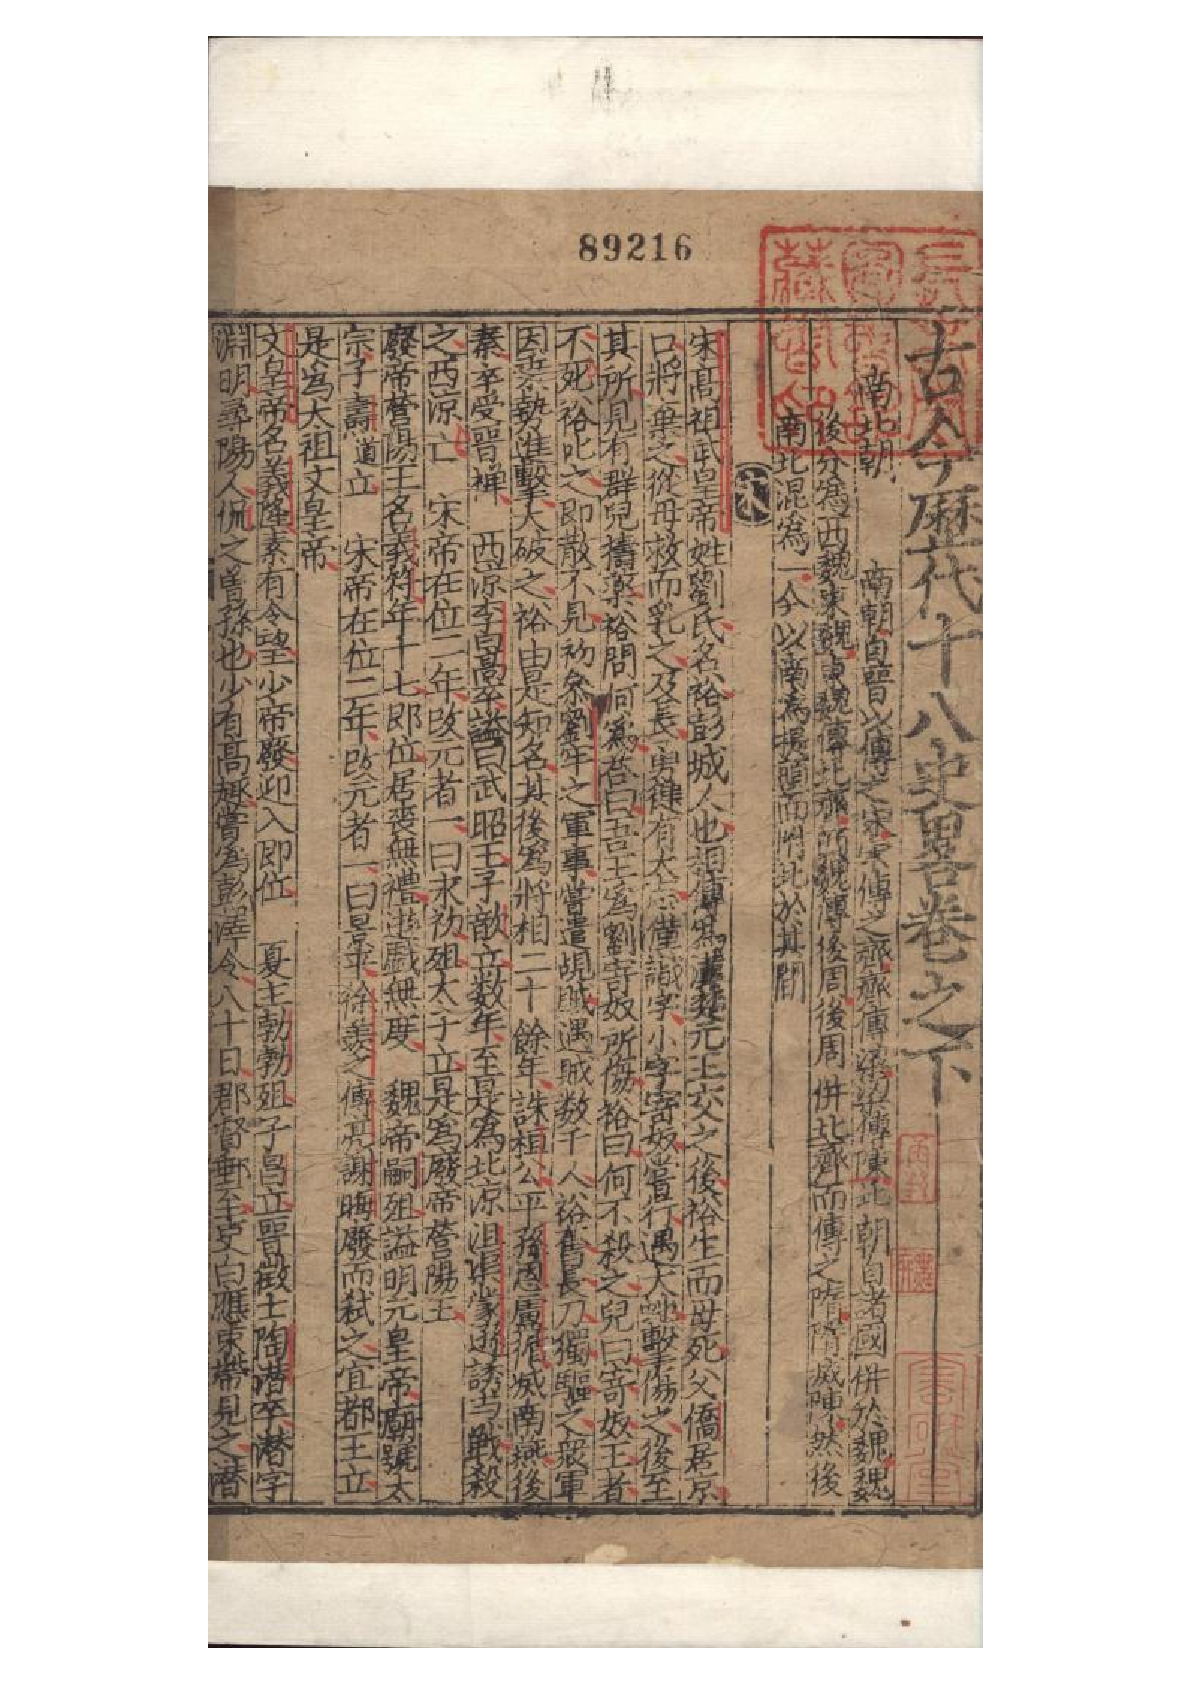 89216
古今歷代十八史畧卷之下
南北朝 南朝自晉以傳之宋宋傳之齊齊傳梁梁傳陳北朝自諸國併於魏魏
後分爲西魏東魏東魏傳北齊西魏傳後周後周併北齊而傳之隋隋滅陳然後
南北混爲一今以南爲提頭而附北於其間
宋
宋高祖武皇帝姓劉氏名裕彭城人也相傳爲漢楚元王交之後裕生而母死父僑居京
口將棄之從母救而乳之及長勇健有大志僅識字小字寄奴嘗行遇大虵擊傷之後至
其所見有群兒擣藥裕問何爲荅曰吾王爲劉寄奴所傷裕曰何不殺之兒曰寄奴王者
不死裕叱之即散不見初參劉牢之軍事嘗遣覘賊遇賊数千人裕奮長刀獨驅之衆軍
因乗勢進擊大破之裕由是知名其後爲將相二十餘年誅桓公平孫恩盧循滅南燕後
秦卒受晉禅 西凉李暠卒謚曰武昭王子歆立数年至是爲北凉沮渠蒙遜誘与戰殺
之西凉亡 宋帝在位二年改元者一曰永初殂太子立是爲廢帝營陽王
廢帝營陽王名義符年十七即位居喪無禮遊戲無度 魏帝嗣殂謚明元皇帝廟號太
宗子壽道立 宋帝在位二年改元者一曰景平徐羨之傅亮謝晦廢而弒之宜都王立
是爲太祖文皇帝
文皇帝名義隆素有令望少帝廢迎入即位 夏主勃勃殂子昌立晉徵士陶潜卒潜字
淵明尋陽人侃之曽孫也少有高趣嘗爲彭澤令八十日郡督郵至吏白應束帶見之潜